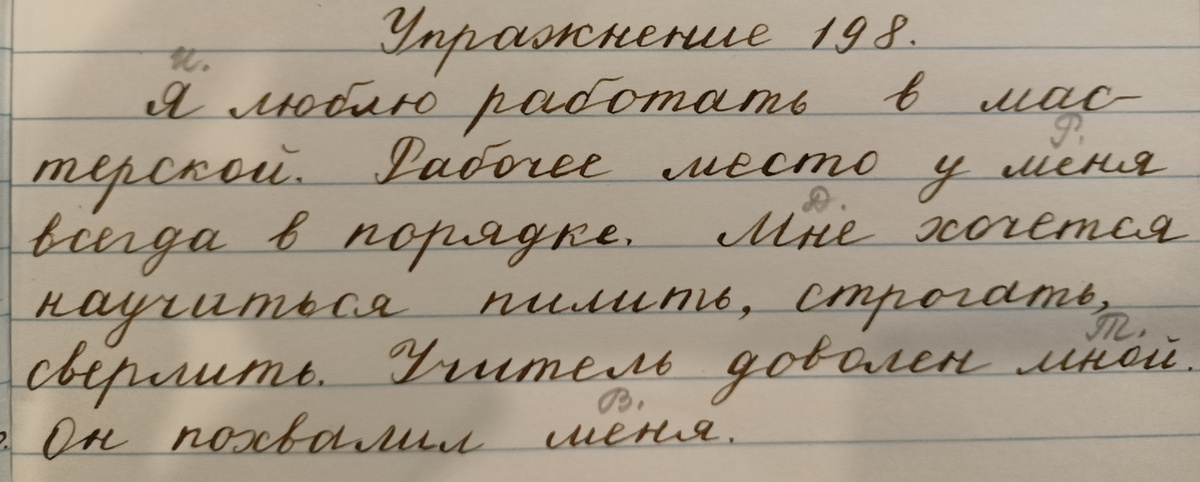 Упражнение 198.
и.
Я люблю работать в мас-
терской. Рабочее место у меня
Р.
всегда в порядке. Мне хочется
Д.
научиться пилить, строгать,
сверлить. Учитель доволен мной.
Т.
Он похвалил меня.
В.